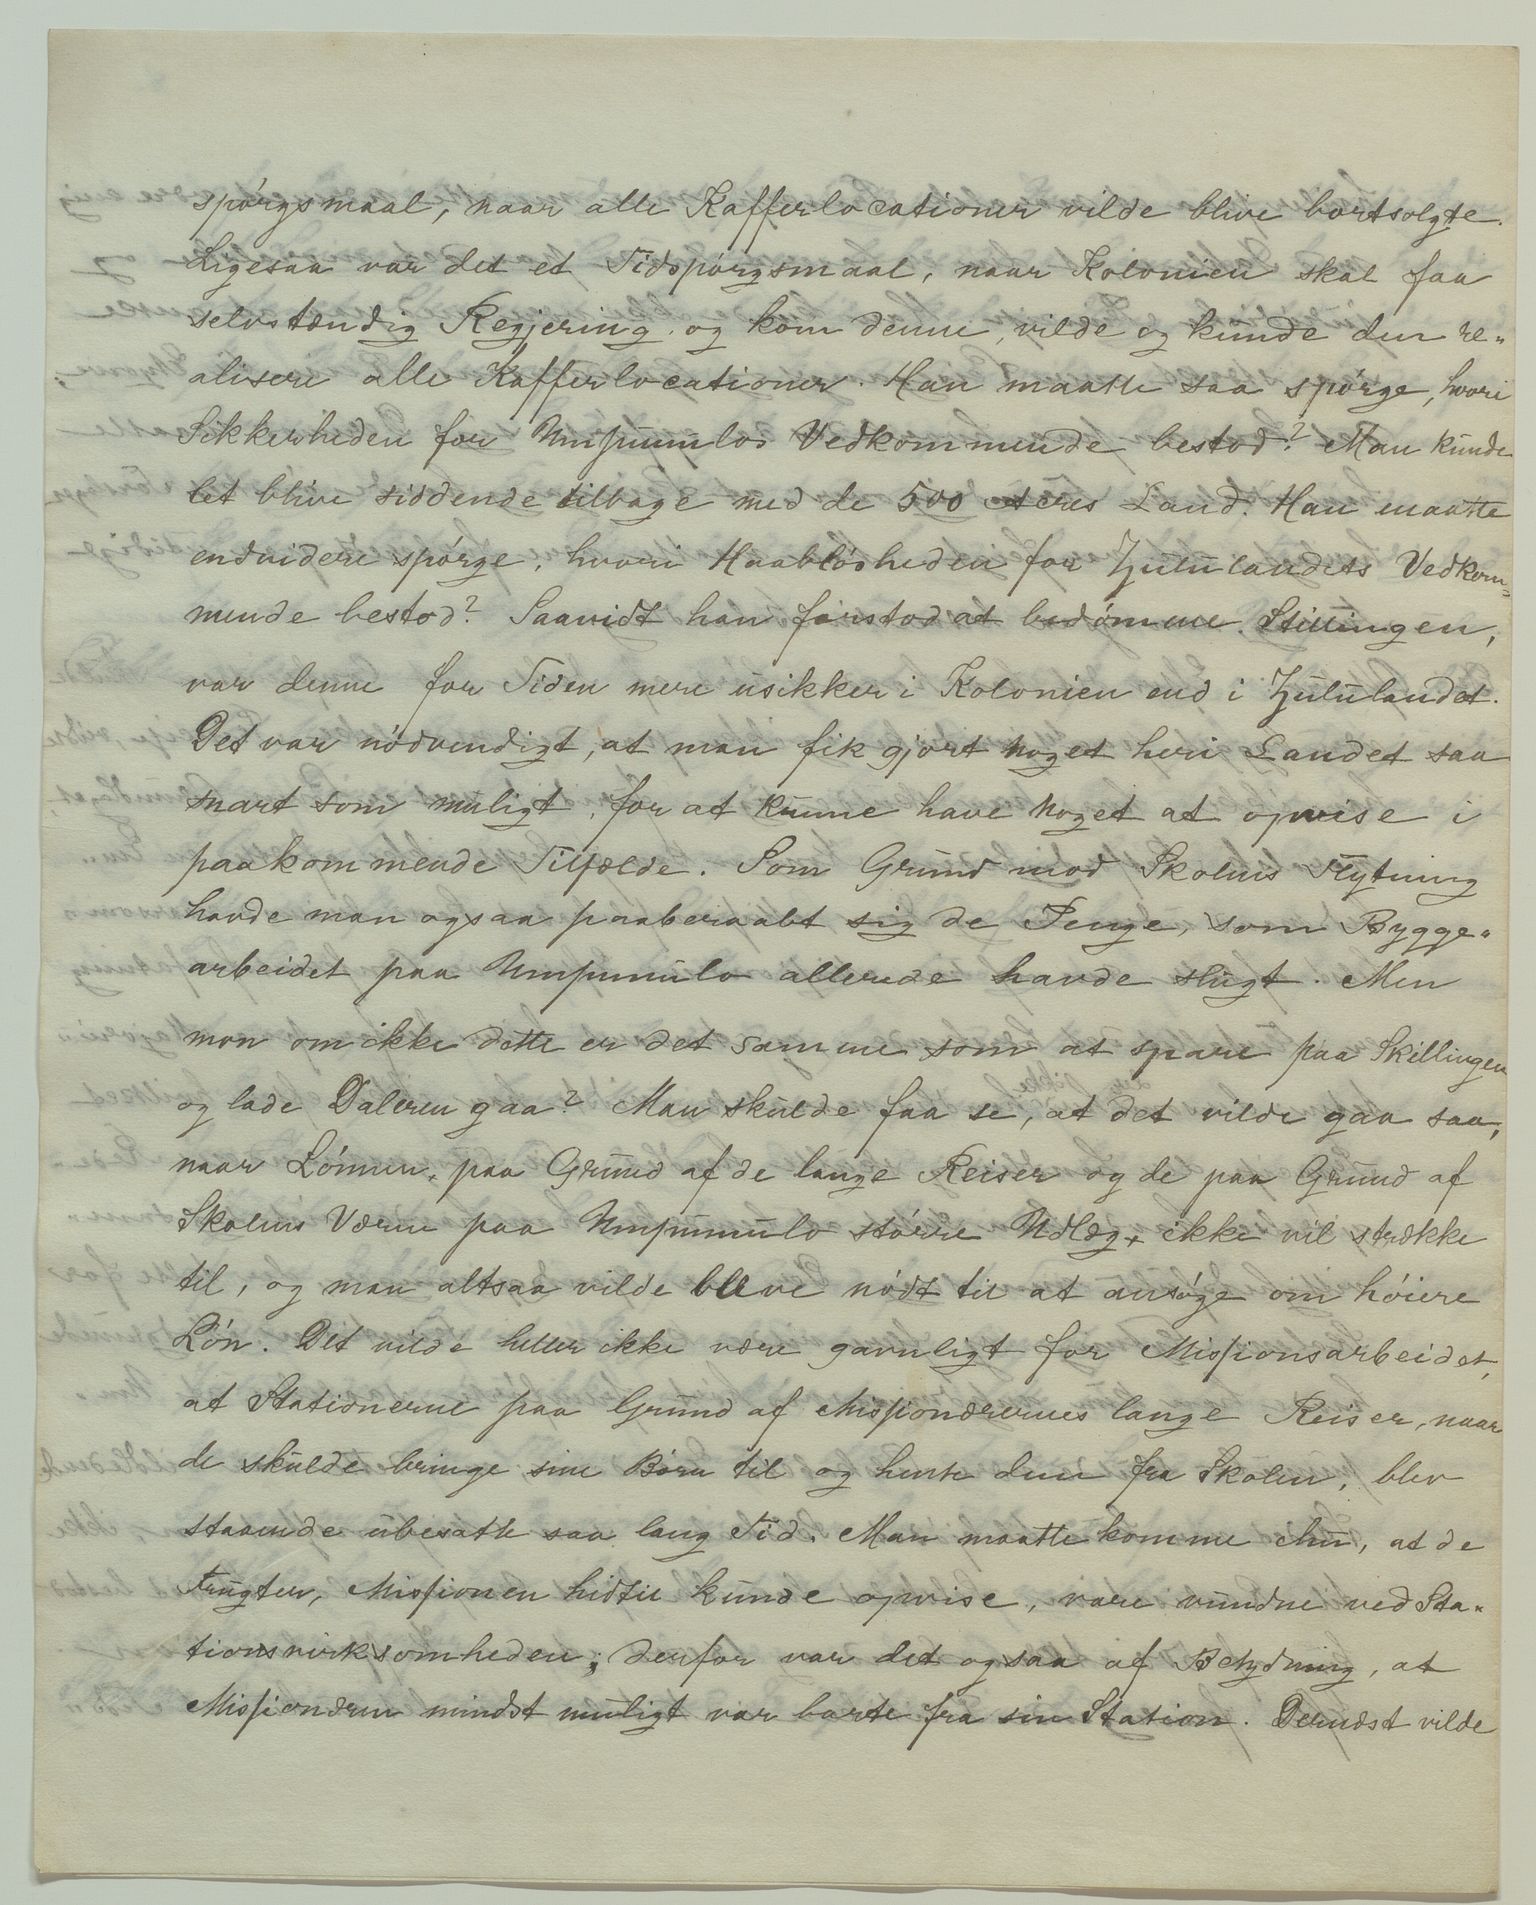 spórgsmaal, naar alle Kafferlocationer vilde blive bortsolgte.
Ligesaa var det et Tidspórgsmaal, naar Kolonien skal faa
selvstændig Regjering og kom denne, vilde og kunde den re„
alisere alle Kafferlocationer. Han maatte saa spórge, hvori
Sikkerheden for Umpumulos Vedkommende bestod? Man kunde
let blive siddende tilbage med de 500 Acres Land. Han maatte
endvidere spórge, hvori Haablósheden for Zululandets Vedkom„
mende bestod? Saavidt han forstod at bedómme Stillingen,
var denne for Tiden mere usikker i Kolonien end i Zululandet.
Det var nódvendigt, at man fik gjort noget heri Landet saa
snart som muligt, for at kunne have noget at opvise i
paakommende Tilfælde. Som Grund mod Skolens Flytning
havde man ogsaa paaberaabt sig de Penge, som Bygge„
arbeidet paa Umpumulo allerede havde slugt. Men
mon om ikke dette er det samme som at spare paa Skillingen
og lade Daleren gaa? Man skulde faa se, at det vilde gaa saa,
naar Lónnen, paa Grund af de lange Reiser og de paa Grund af
Skolens Væren paa Umpumulo stórre Udlæg, ikke vil strække
til, og man altsaa vilde blive nódt til at ansóge om hóiere
Lón. Det vilde heller ikke være gavnligt for Missionsarbeidet,
at Stationerne paa Grund af Missionærernes lange Reiser, naar
de skulde bringe sine Bórn til og hente dem fra Skolen, blev
staaende ubesatte saa lang Tid. Man maatte komme ihu, at de
Frugter, Missionen hidtil kunde opvise, vare vundne ved Sta„
tionsvirksomheden; derfor var det ogsaa af Betydning, at
Missionæren mindst muligt var borte fra sin Station. Dernæst vilde